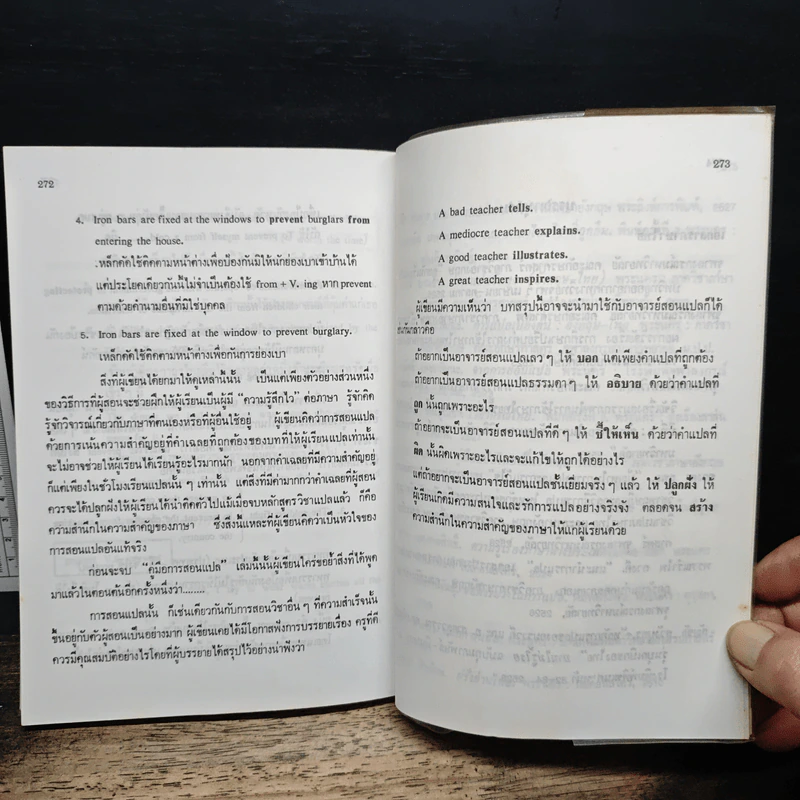 272
4. Iron bars are fixed at the windows to prevent burglars from
entering the house.
เหล็กดัดใช้ติดตามหน้าต่างเพื่อป้องกันมิให้นักย่องเบาเข้าบ้านได้
แต่ประโยคเดียวกันนี้ไม่จำเป็นต้องใช้ from + V. ing หาก prevent
ตามด้วยคำนามอื่นที่มิใช่บุคคล
5. Iron bars are fixed at the window to prevent burglary.
เหล็กดัดใช้ติดตามหน้าต่างเพื่อกันการย่องเบา
สิ่งที่ผู้เขียนได้ยกมาให้ดูเหล่านี้นั้น เป็นแต่เพียงตัวอย่างส่วนหนึ่ง
ของวิธีการที่ผู้สอนจะช่วยฝึกให้ผู้เรียนเป็นผู้มี “ความรู้สึกไว” ต่อภาษา รู้จักคิด
รู้จักวิจารณ์เกี่ยวกับภาษาที่ตนเองหรือที่ผู้อื่นใช้อยู่ ผู้เขียนคิดว่าการสอนแปล
ด้วยการเน้นความสำคัญอยู่ที่คำเฉลยที่ถูกต้องของบทที่ให้ผู้เรียนแปลเท่านั้น
จะไม่อาจช่วยให้ผู้เรียนได้เรียนรู้อะไรมากนัก นอกจากคำเฉลยที่มีความสำคัญอยู่
ก็แต่เพียงในชั่วโมงเรียนแปลนั้น ๆ เท่านั้น แต่สิ่งที่มีค่ามากกว่าคำเฉลยที่ผู้สอน
ควรจะได้ปลูกฝังให้ผู้เรียนได้นำติดตัวไปแม้เมื่อจบหลักสูตรวิชาแปลแล้ว ก็คือ
ความสำนึกในความสำคัญของภาษา ซึ่งสิ่งนี้แหละที่ผู้เขียนคิดว่าเป็นหัวใจของ
การสอนแปลอันแท้จริง
ก่อนจะจบ “คู่มือการสอนแปล” เล่มนี้นั้นผู้เขียนใคร่ขอย้ำสิ่งที่ได้พูด
มาแล้วในตอนต้นอีกครั้งหนึ่งว่า........
การสอนแปลนั้น ก็เช่นเดียวกันกับการสอนวิชาอื่น ๆ ที่ความสำเร็จนั้น
ขึ้นอยู่กับตัวผู้สอนเป็นอย่างมาก ผู้เขียนเคยได้มีโอกาสฟังการบรรยายเรื่อง ครูที่ดี
ควรมีคุณสมบัติอย่างไรโดยที่ผู้บรรยายได้สรุปไว้อย่างน่าฟังว่า
273
A bad teacher tells.
A mediocre teacher explains.
A good teacher illustrates.
A great teacher inspires.
ผู้เขียนมีความเห็นว่า บทสรุปนี้อาจจะนำมาใช้กับอาจารย์สอนแปลก็ได้
เช่นกันกล่าวคือ
ถ้าอยากเป็นอาจารย์สอนแปลเลว ๆ ให้ บอก แต่เพียงคำแปลที่ถูกต้อง
ถ้าอยากจะเป็นอาจารย์สอนแปลธรรมดา ๆ ให้ อธิบาย ด้วยว่าคำแปลที่
ถูก นั้นถูกเพราะอะไร
ถ้าอยากจะเป็นอาจารย์สอนแปลที่ดี ๆ ให้ ชี้ให้เห็น ด้วยว่าคำแปลที่
ผิด นั้นผิดเพราะอะไรและจะแก้ไขให้ถูกได้อย่างไร
แต่ถ้าอยากจะเป็นอาจารย์สอนแปลชั้นเยี่ยมจริง ๆ แล้ว ให้ ปลูกฝัง ให้
ผู้เรียนเกิดมีความสนใจและรักการแปลอย่างจริงจัง ตลอดจน สร้าง
ความสำนึกในความสำคัญของภาษาให้แก่ผู้เรียนด้วย